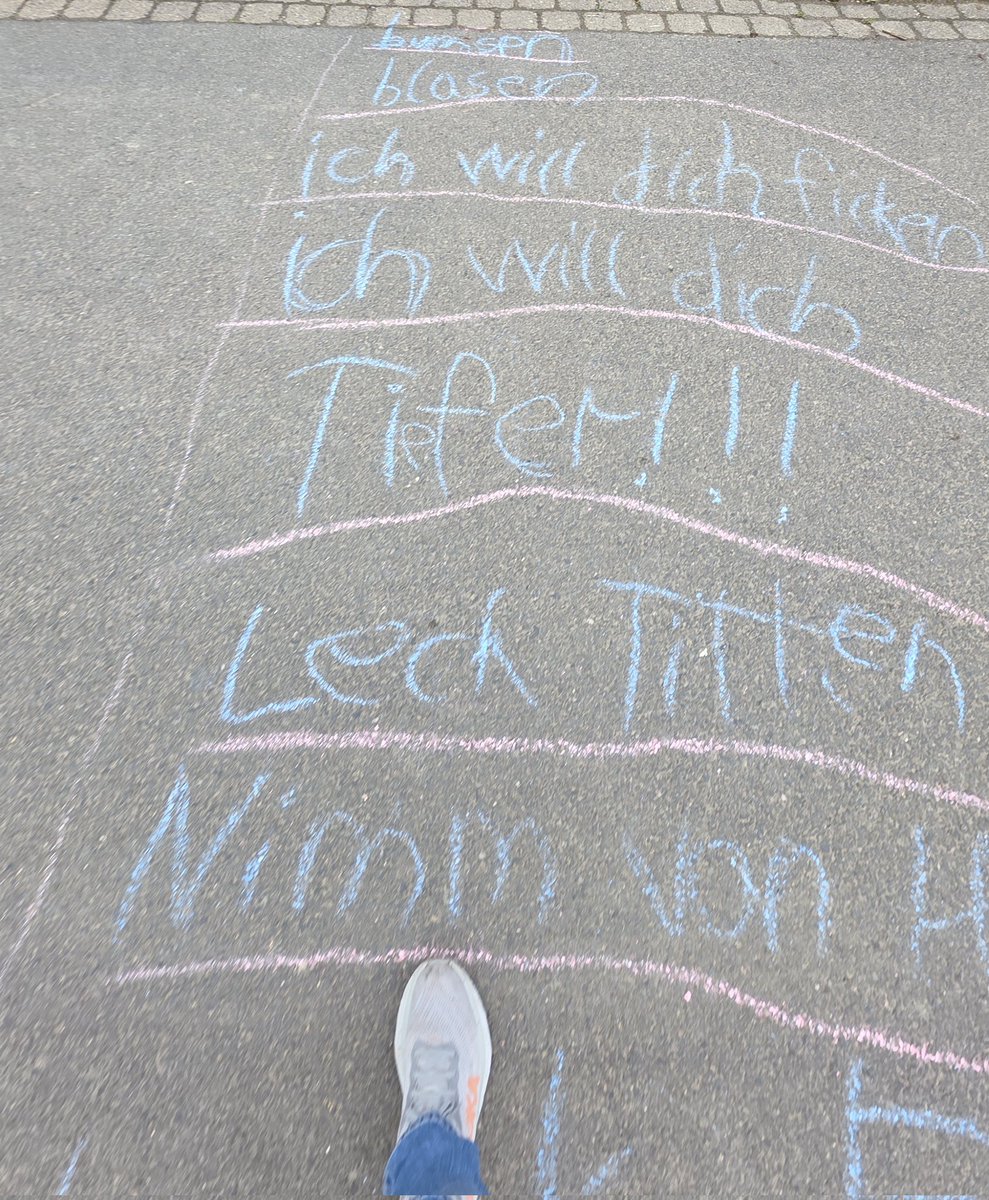 bumsen
blasen
ich will dich ficken
ich will dich
Tiefer!!!
Leck Titten
Nimm von H